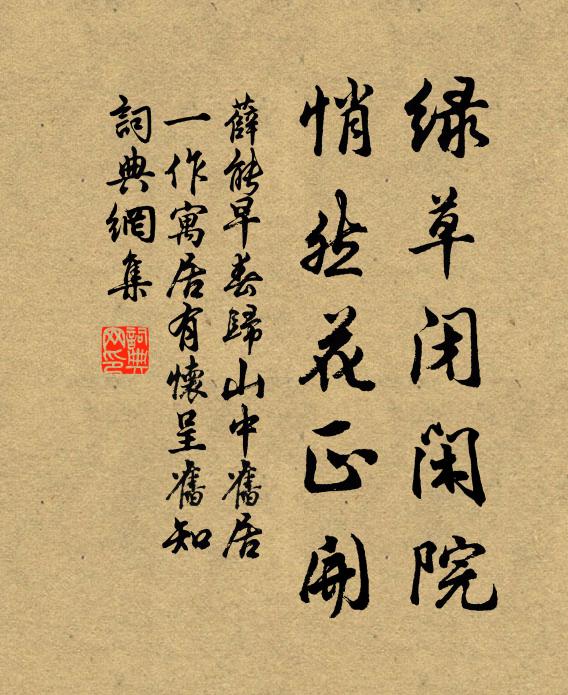 绿草闭闲院
悄然花正开
薛能早春歸山中舊居
一作寓居有懷呈舊知
詞典網集
詞典
网印